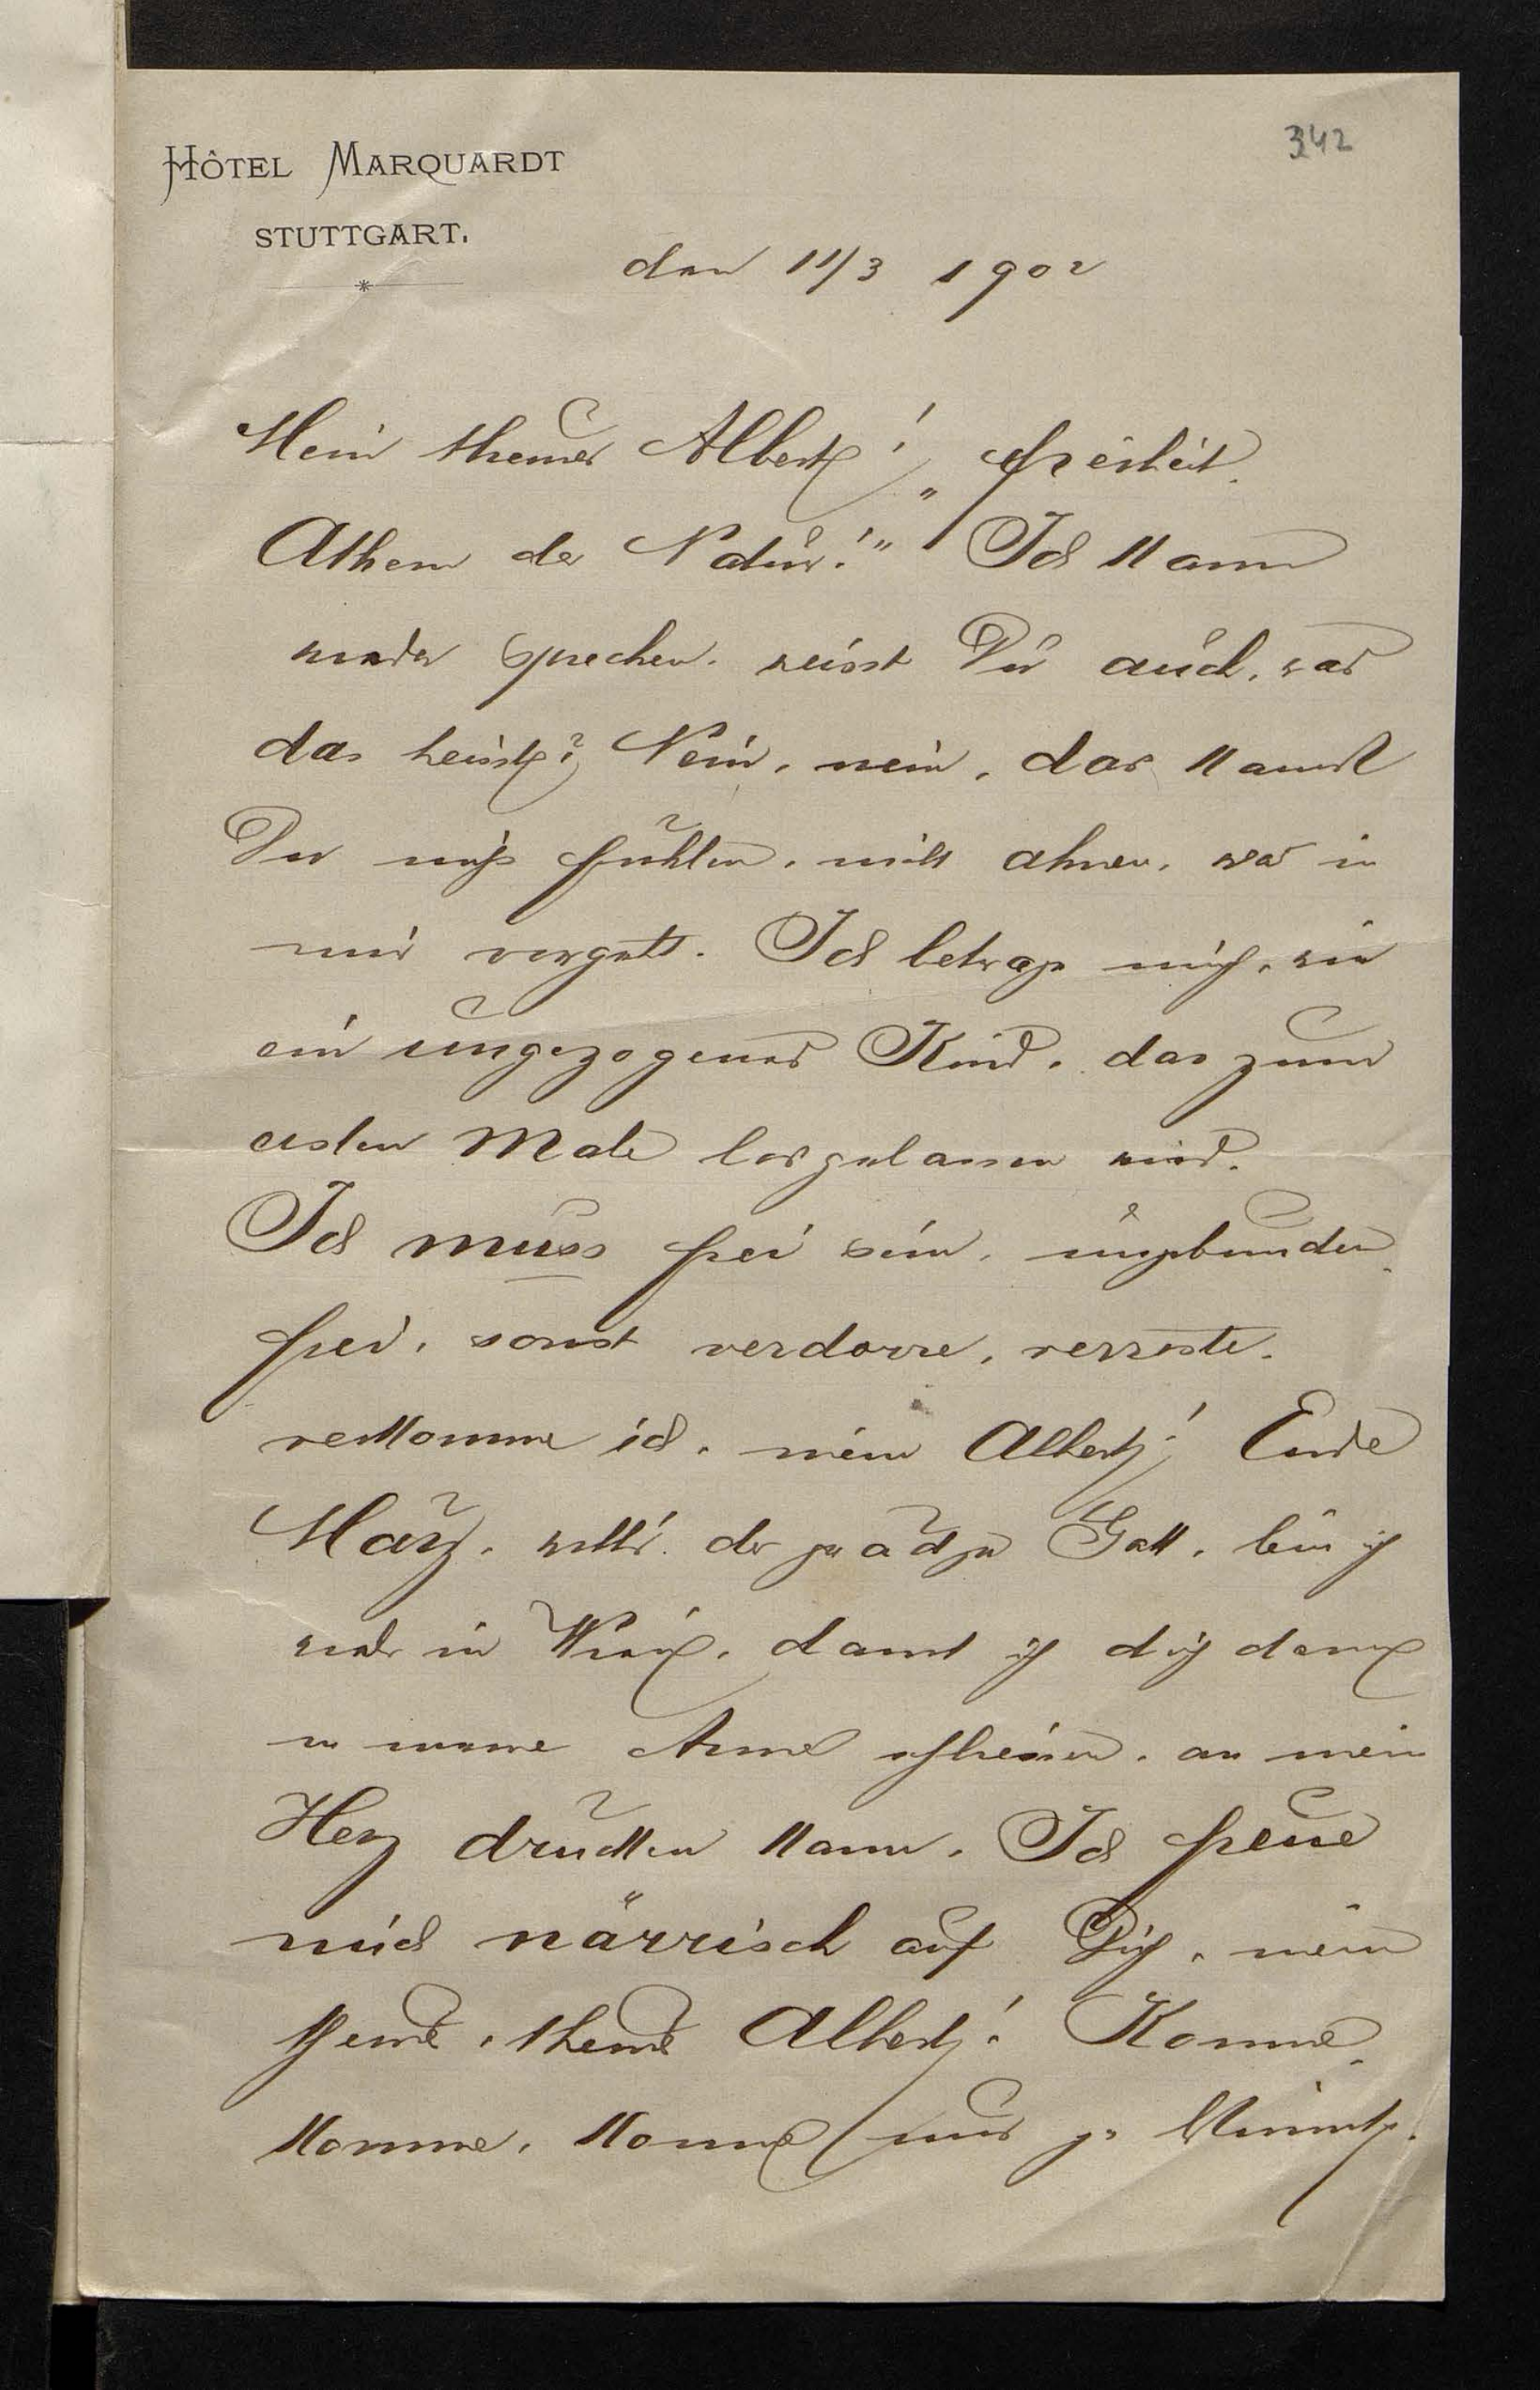 342
HÔTEL MARQUARDT
STUTTGART.
den 11/3 1902
Mein theurer Albert! „Freiheit,
Athem der Natur!“ Ich kann
wieder sprechen, weisst Du auch, was
das heisst? Nein, nein, das kannst
Du nicht fühlen, nicht ahnen, was in
mir vorgeht. Ich betrage mich, wie
ein ungezogenes Kind, das zum
ersten Male losgelassen wird.
Ich muss frei sein, ungebunden,
frei, sonst verdorre, verroste,
verkomme ich, mein Albert! Ende
März, will's der gnädige Gott, bin ich
wieder in Wien, damit ich dich dann
in meine Arme schließen, an mein
Herz drücken kann. Ich freue
mich närrisch auf Dich, mein
theurer, theurer Albert! Komme,
komme, komme nur